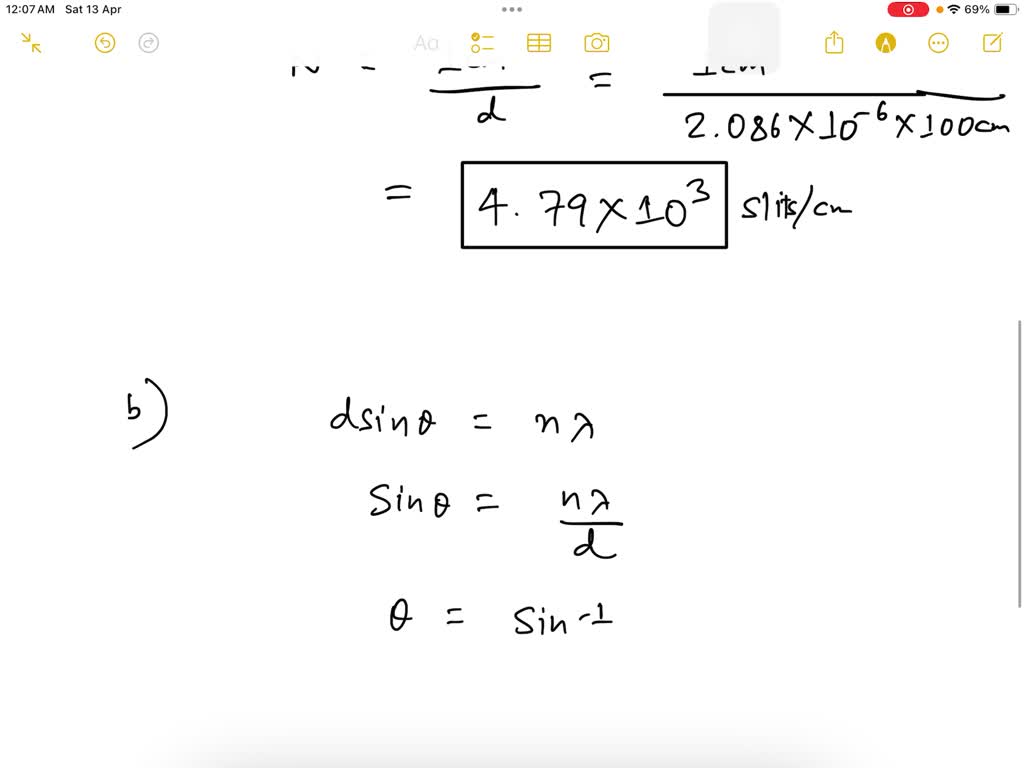 12:07 AM Sat 13 Apr
69%
Aa
d = 2.086 × 10⁻⁶ × 100cm
= 4.79 × 10³ slits/cm
b) dsinθ = nλ
Sinθ = nλ / d
θ = Sin⁻¹